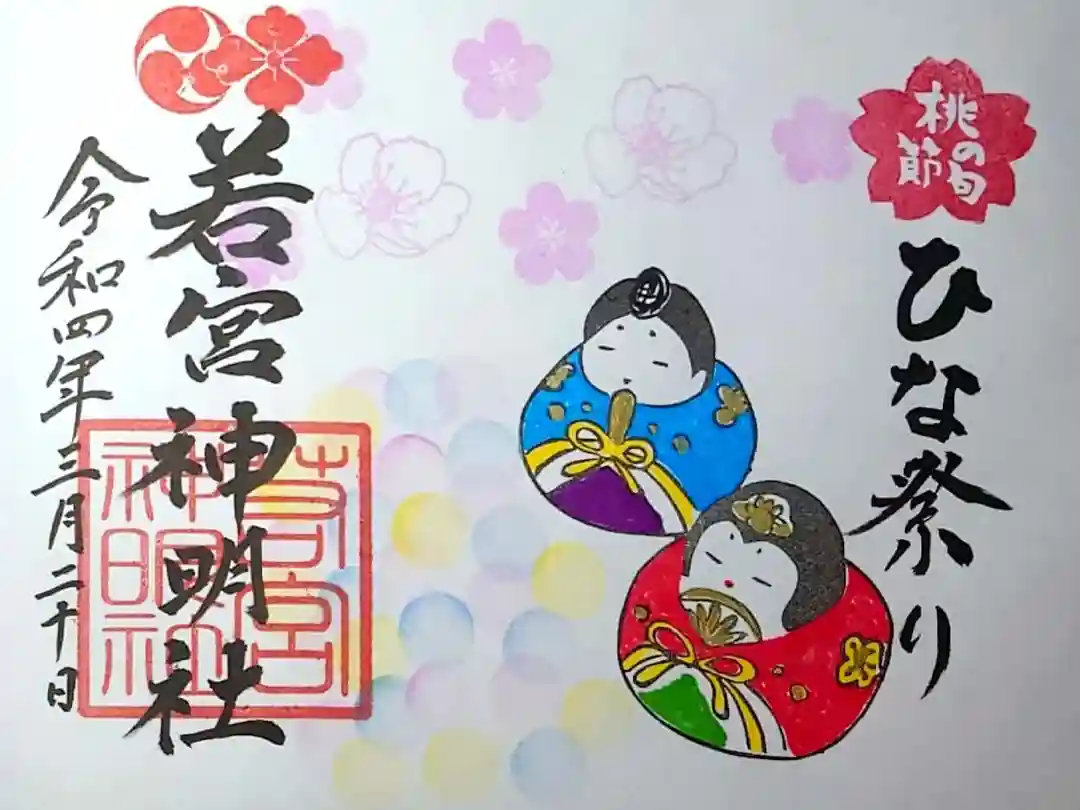 桃の
節句
ひな祭り
若宮神明社
若宮
神明社
令和四年三月二十日